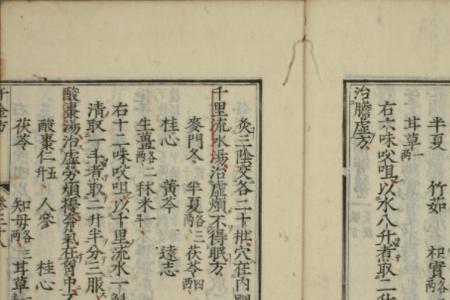 半夏 竹茹 枳實各二兩
甘草一兩
右六味㕮咀以水八升煮取二升
治膽虛方
灸三陰交各二十壯穴在內踝
千里流水湯治虛煩不得眠方
麥門冬 半夏各三兩 茯苓四兩
桂心 黃芩 遠志
生薑各二兩 秫米一升
右十二味㕮咀以千里流水一斛
清取一斗煮取二升半分三服
酸棗湯治虛勞煩擾奔氣在胸中不
酸棗仁五升 人參 桂心
茯苓 知母各二兩 甘草
千金方 卷三十八